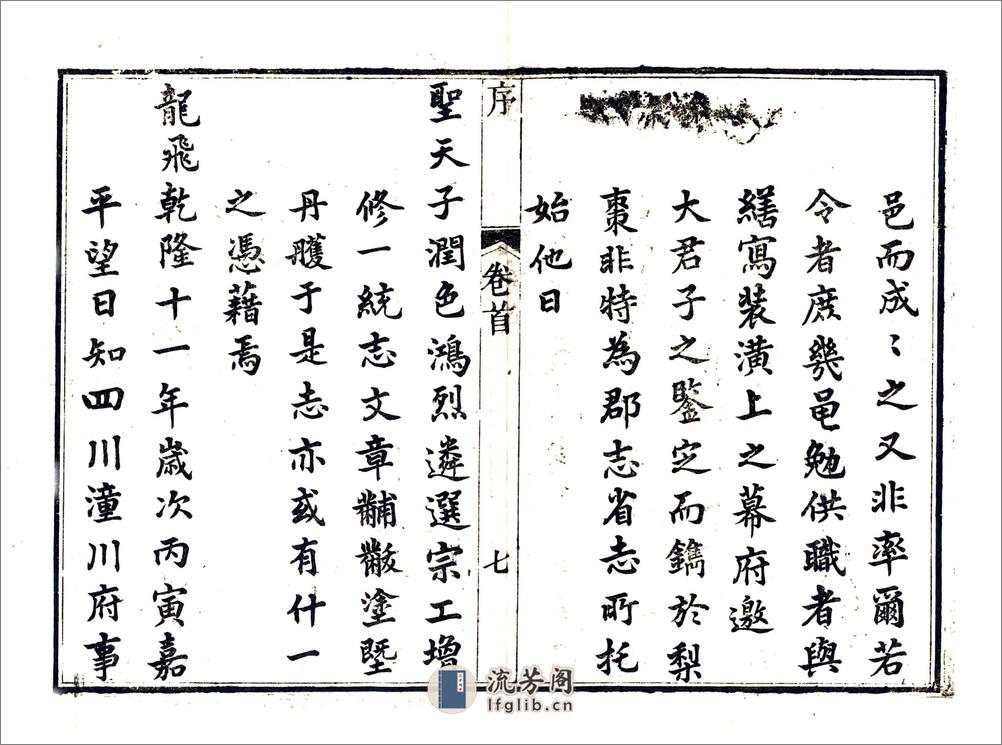 邑而成〻之又非率爾若
令者庶㡬黽勉供職者與
繕寫装潢上之幕府邀
大君子之鑒定而鐫於梨
棗非特為郡志省志所托
始他日
序
卷首
七
聖天子潤色鴻烈遴選宗工增
修一統志文章黼黻塗塈
丹雘于是志亦或有什一
之憑藉焉
龍飛乾隆十一年歲次丙寅嘉
平望日知四川潼川府事
流芳阁
lfglib.cn